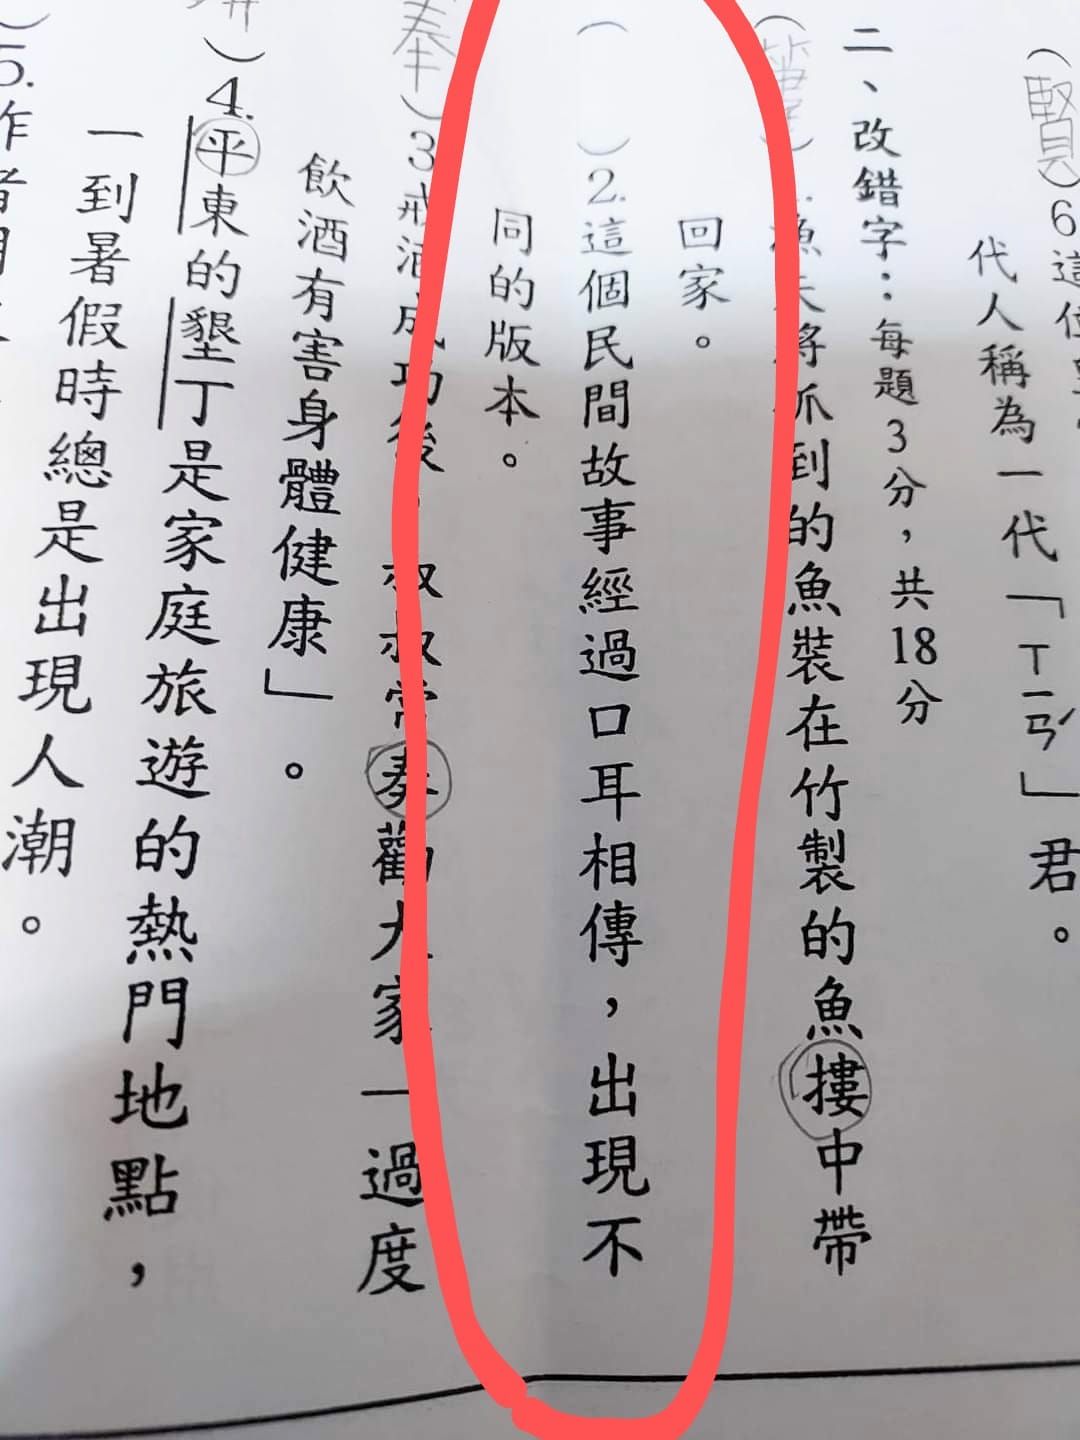 (賢)6.這位
代人稱為一代「ㄒㄧㄢˊ」君。
二、改錯字：每題3分，共18分
(簍)1.漁夫將抓到的魚裝在竹製的魚摟中帶
回家。
( )2.這個民間故事經過口耳相傳，出現不
同的版本。
(奉)3.戒酒成功後，叔叔常奏勸大家「過度
飲酒有害身體健康」。
)4.平東的墾丁是家庭旅遊的熱門地點，
一到暑假時總是出現人潮。
)5.作者用